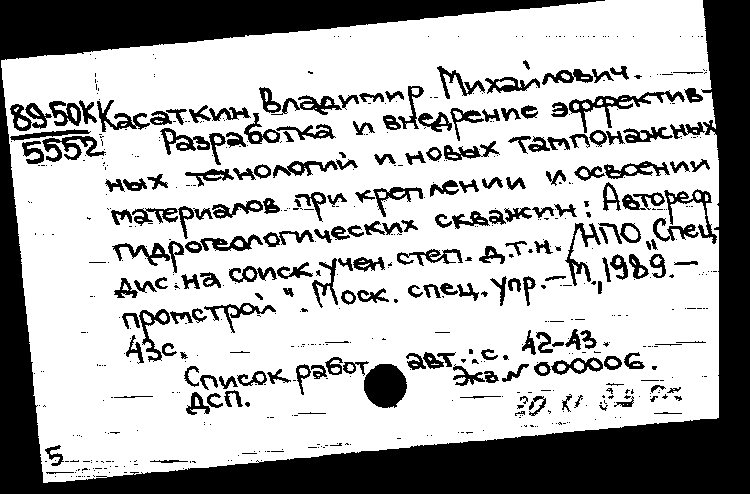 89-50К Касаткин, Владимир Михайлович.
5552 Разработка и внедрение эффектив-
ных технологий и новых тампонажных
материалов при креплении и освоении
гидрогеологических скважин: Автореф.
дис. на соиск. учен. степ. д.т.н. /НПО „Спец-
промстрой". Моск. спец. упр.—М., 1989.—
43с.
Список работ авт.: с. 42-43.
ДСП. Экз.N 000006.
5